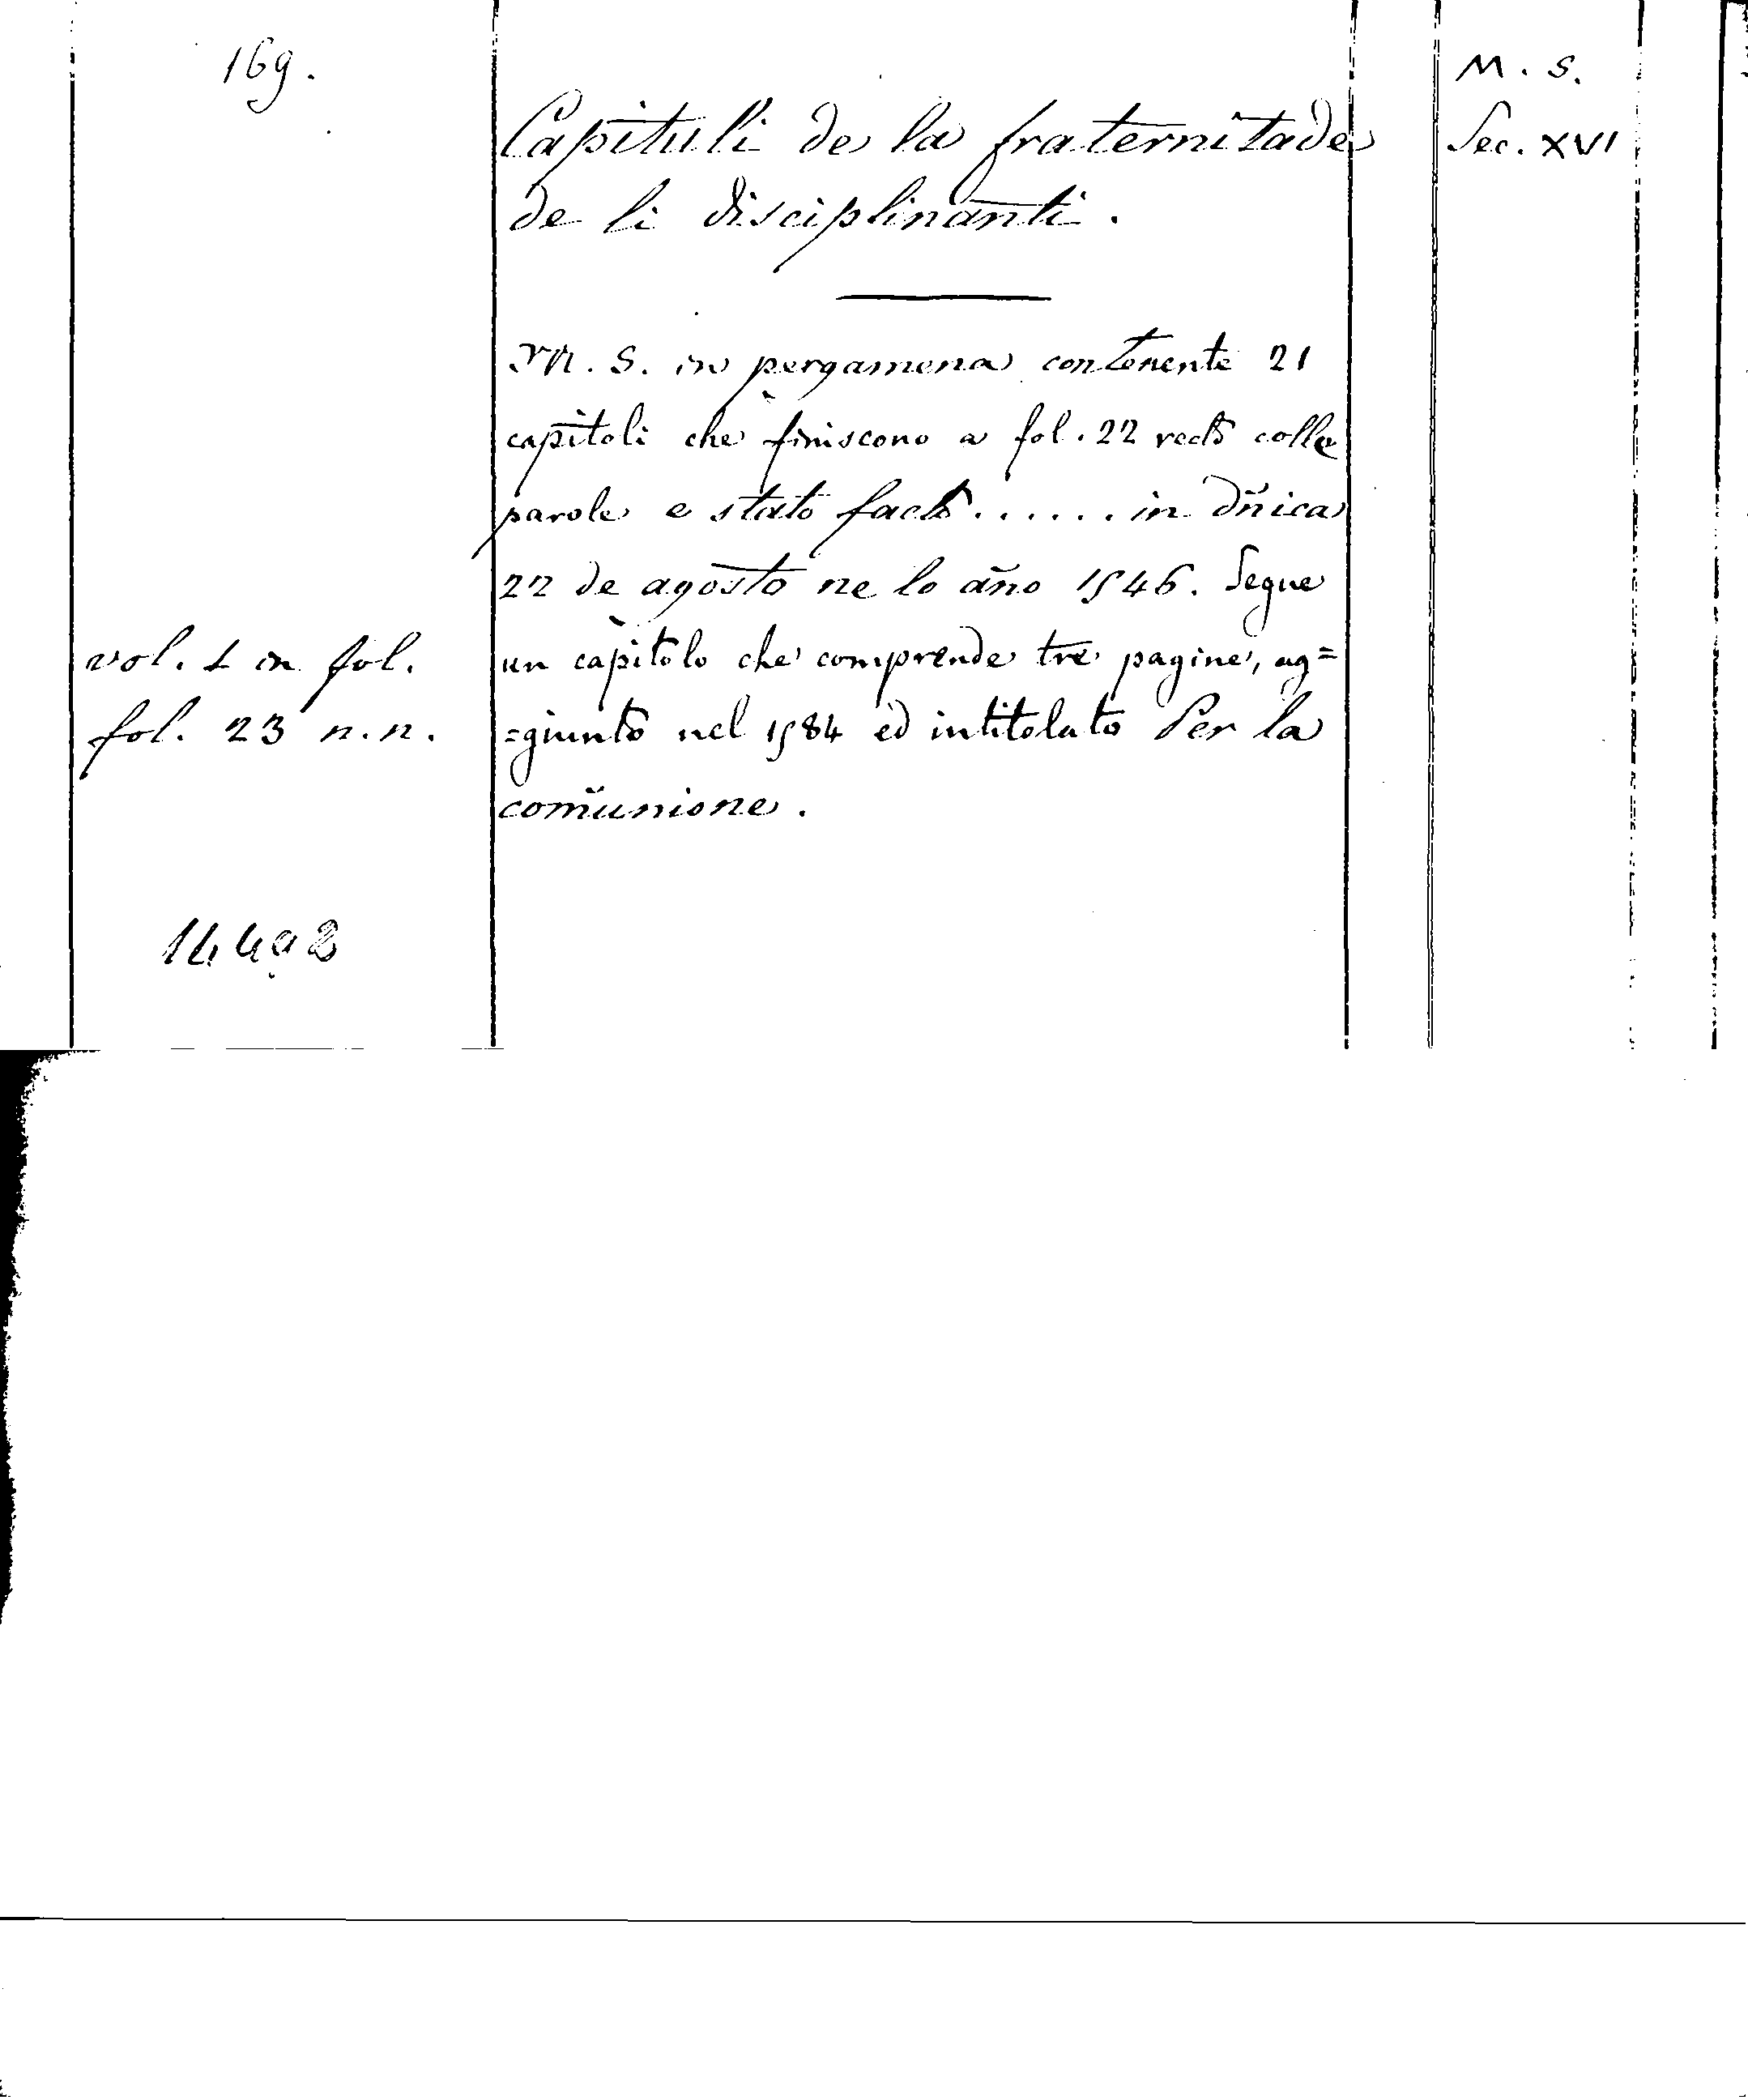 169.
M. S.
Sec. XVI
Capituli de la fraternitade
de li disciplinanti.
M. S. in pergamena contenente 21
capitoli che finiscono a fol. 22 recto colle
parole e stato facto ...... in dñica
22 de agosto ne lo año 1546. Segue
un capitolo che comprende tre pagine, ag=
=giunto nel 1584 ed intitolato Per la
com̃unione.
vol. 1 in fol.
fol. 23 n.n.